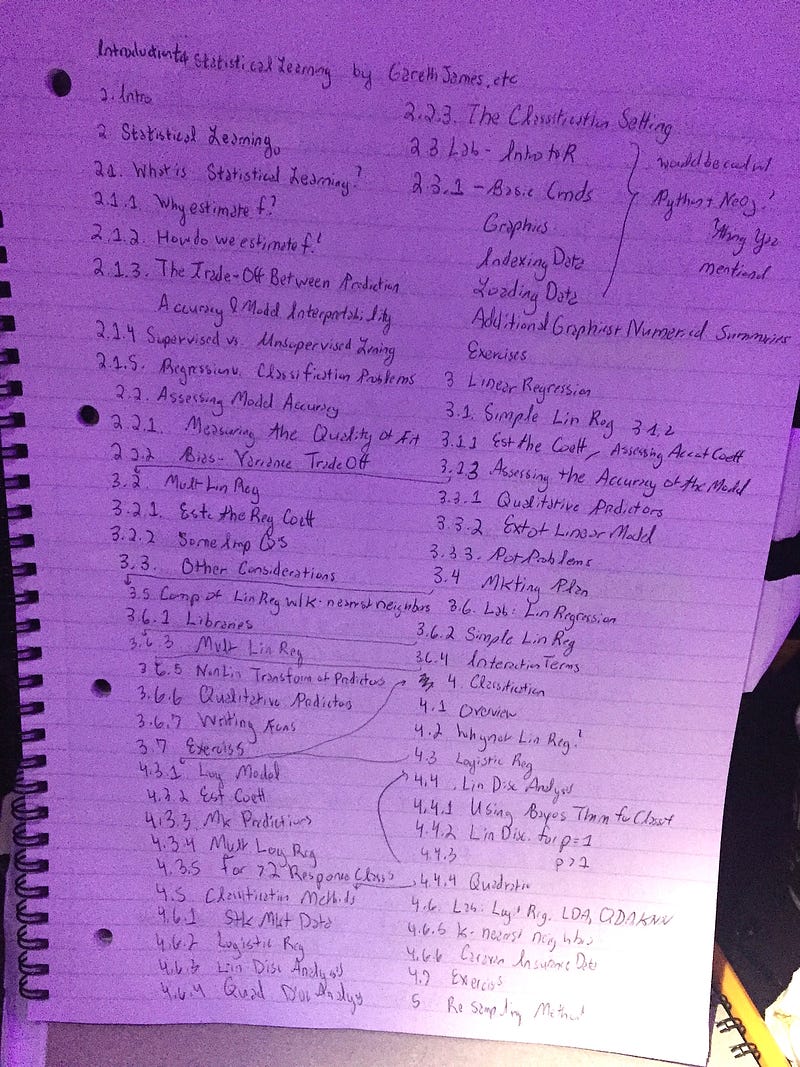 Introduction to Statistical Learning by Gareth James, etc
2. Intro
2 Statistical Learning
2.1. What is Statistical Learning?
2.1.1. Why estimate f?
2.1.2. How do we estimate f?
2.1.3. The Trade-Off Between Prediction
Accuracy & Model Interpretability
2.1.4 Supervised vs. Unsupervised Lrning
2.1.5. Regression v. Classification Problems
2.2. Assessing Model Accuracy
2.2.1. Measuring the Quality of Fit
2.2.2 Bias-Variance Trade Off
2.2.3. The Classification Setting
2.3 Lab - Intro to R
2.3.1 - Basic Cmds
Graphics
Indexing Data
Loading Data
would be cool w/
Python + Neo4j?
Thing you
mentioned
Additional Graphics + Numerical Summaries
Exercises
3 Linear Regression
3.1. Simple Lin Reg 3.1.2
3.1.1 Est the Coeff, Assessing Acc of Coeff
3.1.3 Assessing the Accuracy of the Model
3.2 Mult Lin Reg
3.2.1. Este the Reg Coeff
3.2.2 Some Imp Qs
3.3. Other Considerations
3.3.1 Qualitative Predictors
3.3.2 Ext of Linear Model
3.3.3. Pot Problems
3.4 Mkting Plan
3.5 Comp of Lin Reg w/ k-nearest neighbors
3.6. Lab: Lin Regression
3.6.1 Libraries
3.6.2 Simple Lin Reg
3.6.3 Mult Lin Reg
3.6.4 Interaction Terms
3.6.5 Non Lin Transform of Predictors
3.6.6 Qualitative Predictors
3.6.7 Writing Funs
3.7 Exercises
4. Classification
4.1 Overview
4.2 Why not Lin Reg?
4.3 Logistic Reg
4.3.1 Log Model
4.3.2 Est Coeff
4.3.3 Mk Predictions
4.3.4 Mult Log Reg
4.3.5 for >2 Response Class
4.4. Lin Disc Analysis
4.4.1 Using Bayes Thm for Classf
4.4.2 Lin Disc. for p=1
4.4.3 p>1
4.4.4 Quadratic
4.5 Classification Methods
4.6. Lab: Logist Reg. LDA, QDA, KNN
4.6.1 Stk Mkt Data
4.6.2 Logistic Reg
4.6.3 Lin Disc Analysis
4.6.4 Quad Disc Analys
4.6.5 K-nearest neighbors
4.6.6 Caravan Insurance Data
4.7 Exercises
5 Re Sampling Method